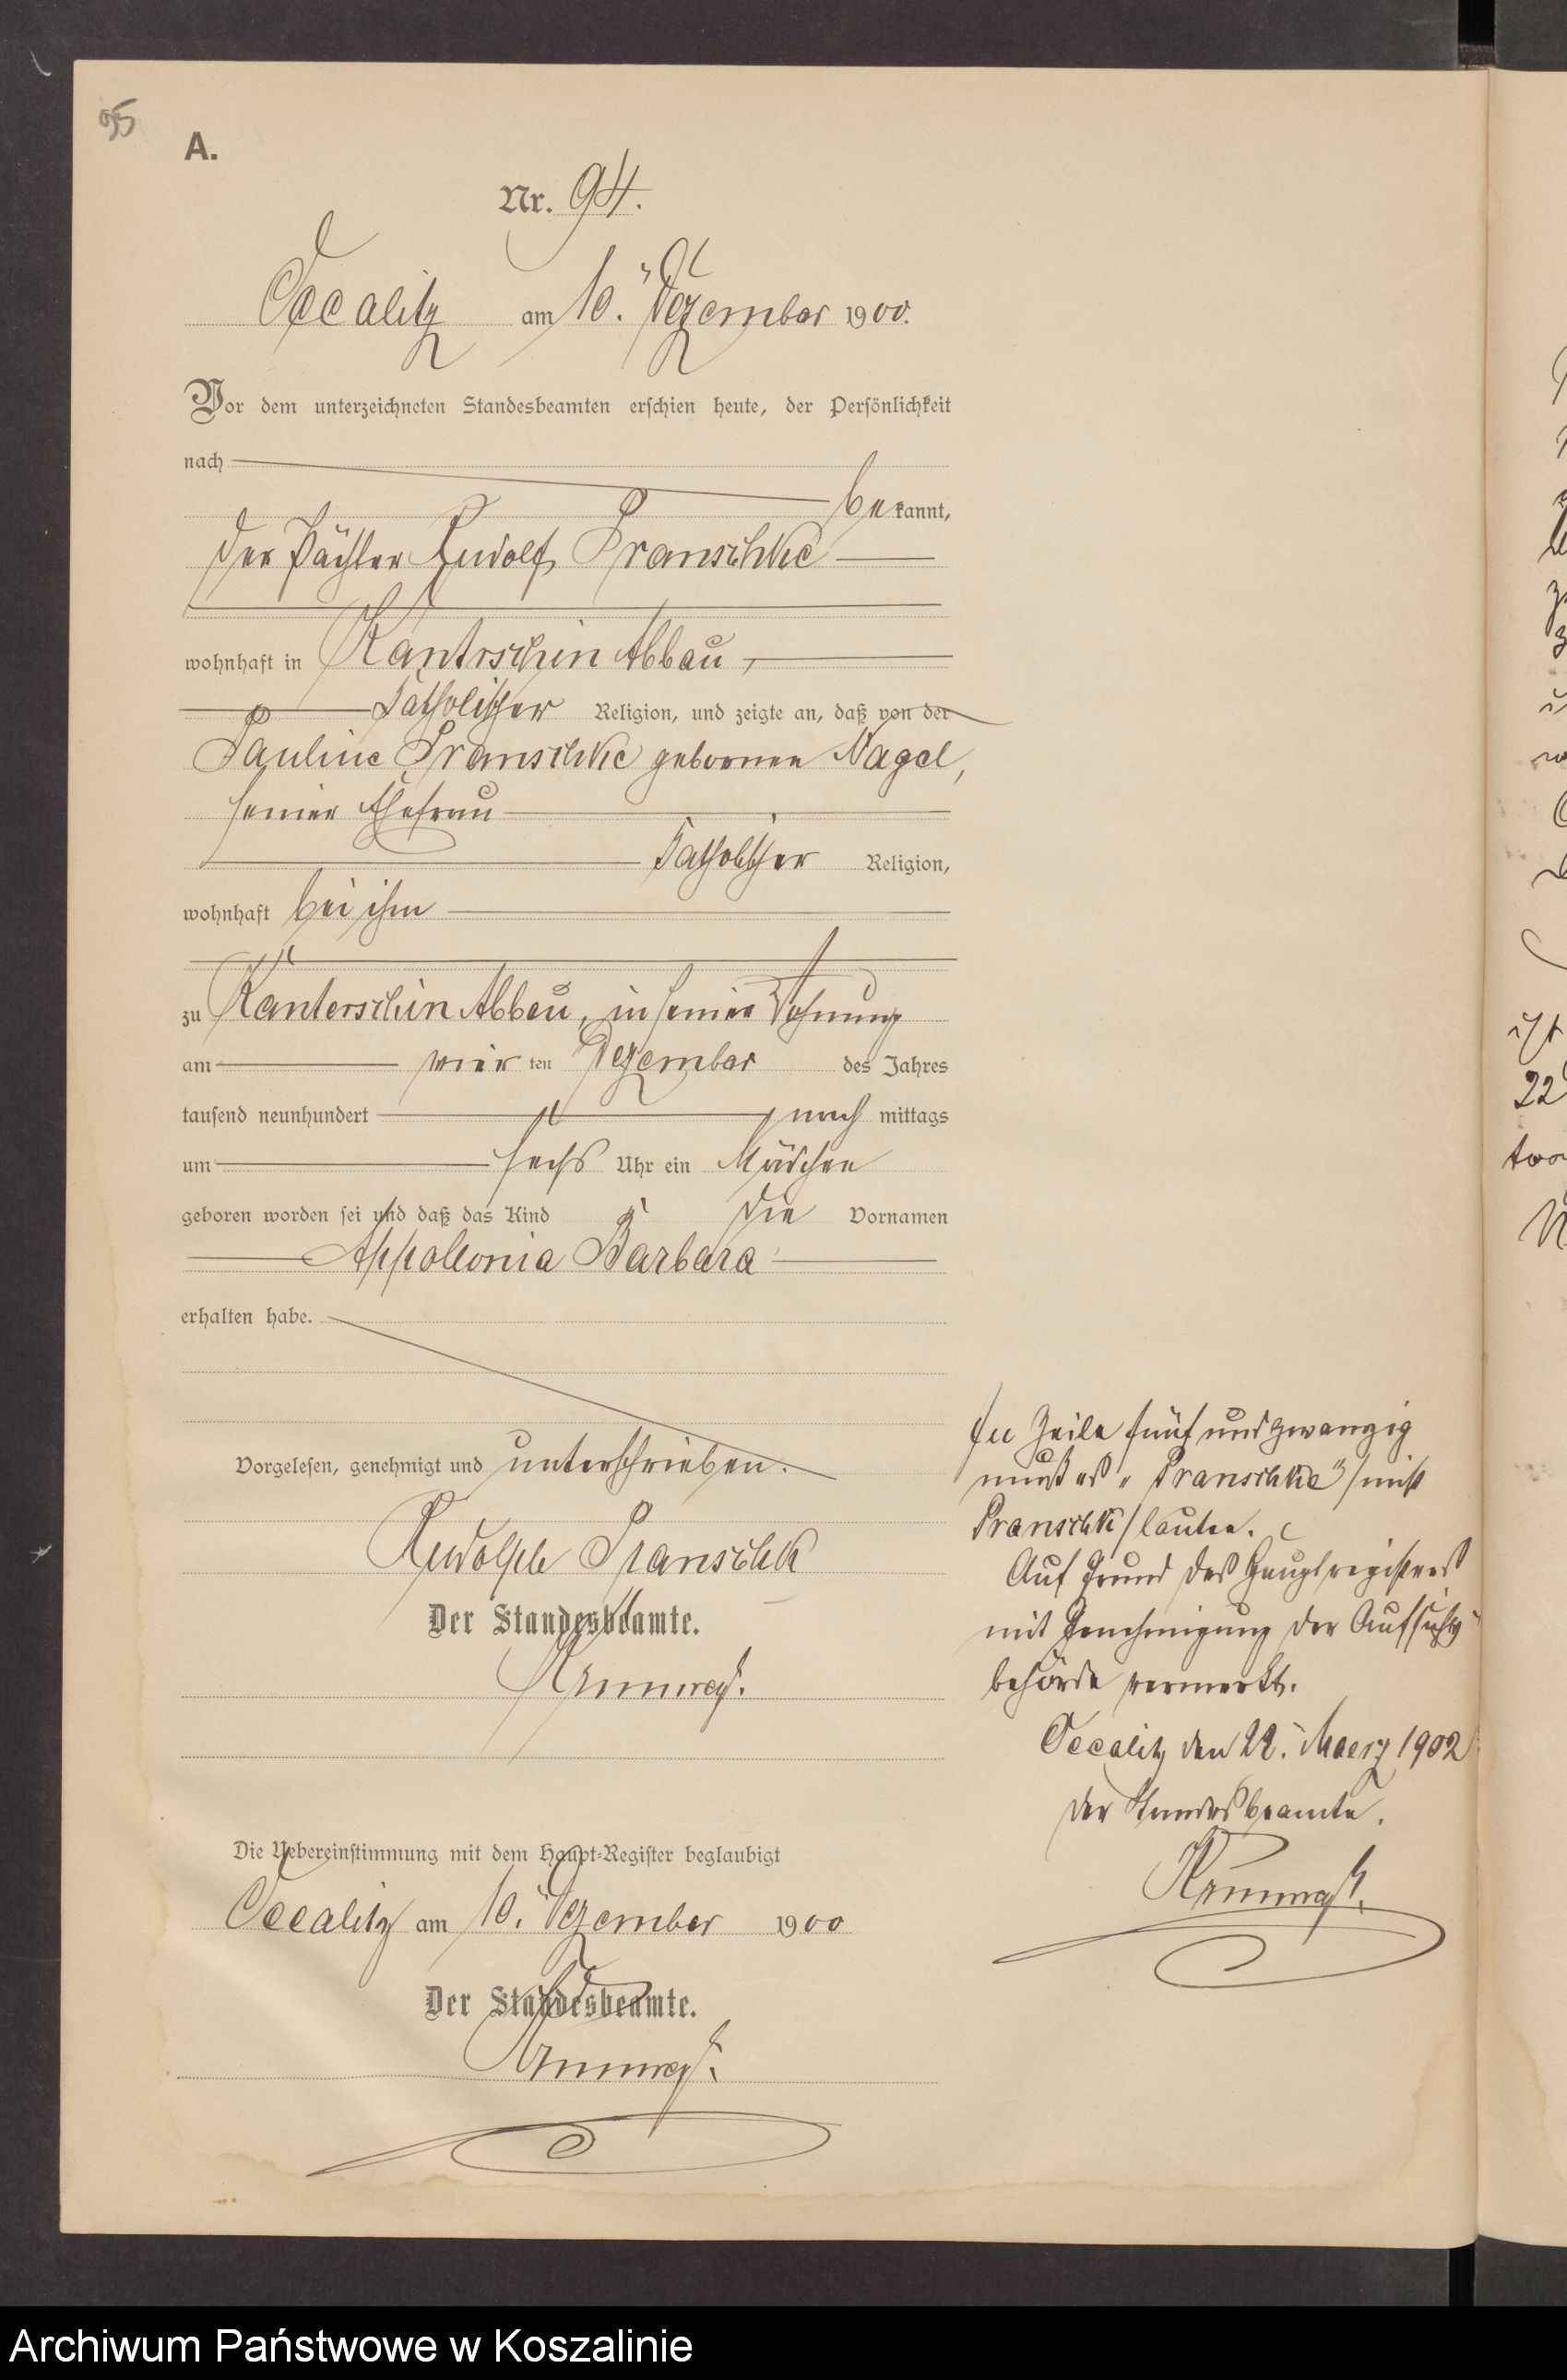 95
A.
Nr. 94.
Occalitz am 10. Dezember 1900.
Vor dem unterzeichneten Standesbeamten erschien heute, der Persönlichkeit
nach
bekannt,
der Pächter Rudolf Pranschke
wohnhaft in Kantrschin Abbau,
katholischer Religion, und zeigte an, daß von der
Pauline Pranschke geborenen Nagel,
seiner Ehefrau
katholischer Religion,
wohnhaft bei ihm
zu Kanterschin Abbau, in seiner Wohnung
am vierten Dezember des Jahres
tausend neunhundert nachmittags
um sechs Uhr ein Mädchen
geboren worden sei und daß das Kind die Vornamen
Appollonia Barbara
erhalten habe.
Vorgelesen, genehmigt und unterschrieben.
Rudolph Pranschk
Der Standesbeamte.
In Zeile fünfundzwanzig
muß es "Pranschke" /nicht
Pranschk/ lauten.
Auf Grund des Hauptregisters
mit Genehmigung der Aufsichts-
behörde vermerkt.
Occalitz den 22. Maerz 1902
Der Standesbeamte.
Die Uebereinstimmung mit dem Haupt-Register beglaubigt
Occalitz am 10. Dezember 1900
Der Standesbeamte.
Archiwum Państwowe w Koszalinie